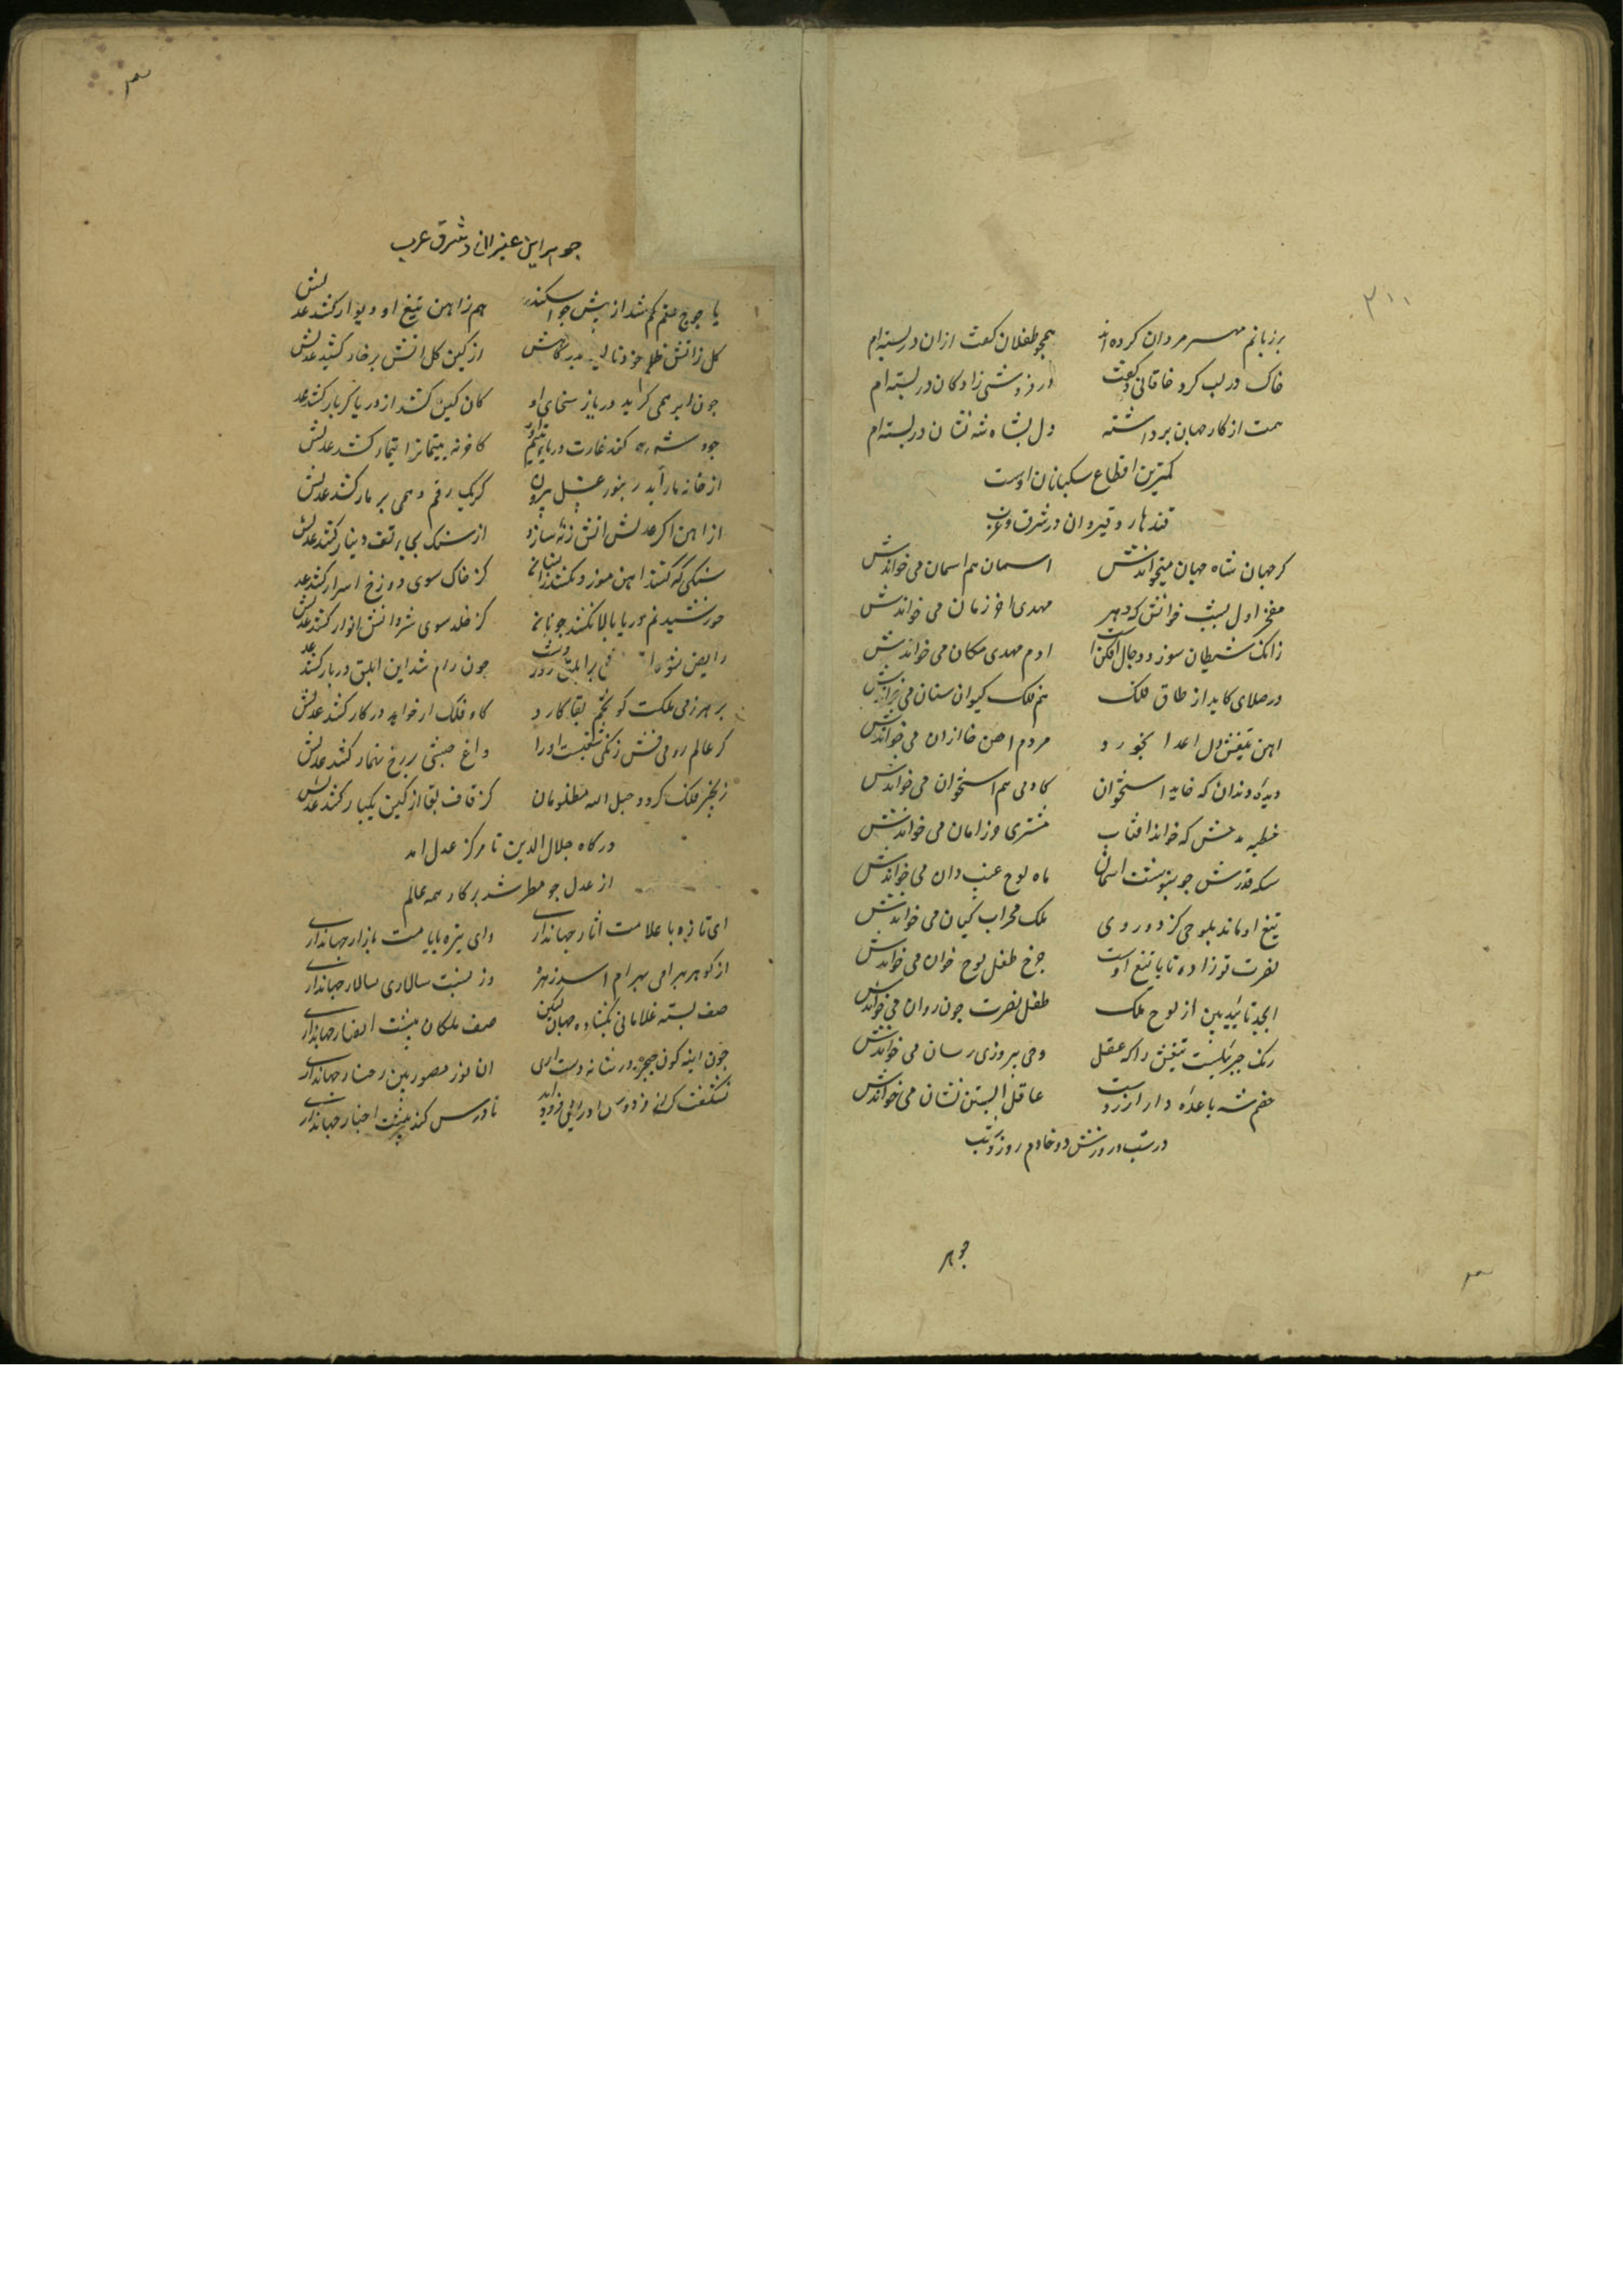 ۳۱۱
بر زبانم مهر مردان کرده اند همچو طفلان گفت ازان در بسته ام
خاک در لب کرد خاقانی و گفت در فروشی زاد کان در بسته ام
همت از کار جهان برداشته دل بشاه شه نشان در بسته ام
کمترین اقطاع سکبانان اوست
قندهار و قیروان در شرق و غرب
کر جهان شاه جهان میخواندش اسمان هم اسمان می خواندش
مفخر اول بشر خوانش که دهر مهدی اخر زمان می خواندش
زانک شیطان سوز و دجال افکن است ادم مهدی مکان می خواندش
در صلای کاید از طاق فلک هم فلک کیوان سنان می خواندش
اهن تیغش دل اعدا بخورد مردم اهن خا ازان می خواندش
دیده دندان که خاید استخوان کادمی هم استخوان می خواندش
خطبه مدحش که خواند افتاب مشتری حرز امان می خواندش
سکه قدرش چو بنوشت اسمان ماه لوح غیب دان می خواندش
تیغ او ماند بلوحی کز دو روی ملک محراب کیان می خواندش
نصرت نو زاده تا با تیغ اوست چرخ طفل لوح خوان می خواندش
ابجد تایید بین از لوح ملک طفل نصرت چون روان می خواندش
رنک جبریلست تیغش را که عقل وحی پیروزی رسان می خواندش
خصم شه باعده دار ازرد است عاقل ابستن نشان می خواندش
در شب و روزش دو خادم روز و شب
جوهر
جوهر این عنبر ان در شرق غرب
یاجوج ستم کم شد از پیش جو اسکندر هم ز اهن تیغ او دیوار کشد عدلش
کل ز اتش ظلم خود نالید بدرکاهش از کین کل اتش بر خار کشد عدلش
جون ابر همی کرید دریا ز سخای او کان کین کشد از دریا کربار کشد عدلش
جود شه کند غارت دریای یتیم اور کافرنه یتیمانرا تیمار کشد عدلش
از خانه مار آید زنبور عسل بیرون کریک رقم وهمی بر مار کشد عدلش
از اهن اکر عدلش اتش زنه سازد از سنک بجای تف دینار کشد عدلش
کز خاک سوی دوزخ اسرار کشد عدلش
خورشید نم دریا بالا نکشد کز خلد سوی شروانش انوار کشد عدلش
جون رام شد این ابلق در بار کشد عدلش
بر هر زمی ملکت کو تخم بقا کارد کاو فلک ار خواهد در کار کشد عدلش
کر عالم رومی فش زنکی شغبست او را داغ حبشی بر رخ نهمار کشد عدلش
زنجیر فلک کردد حبل الله مظلومان کز قاف بقا از کین یکبار کشد عدلش
درکاه جلال الدین تا مرکز عدل امد
از عدل جو مطر شد برکار همه عالم
ای تازه با علامت اثار جهانداری وای تیزه باپامت بازار جهانداری
از کوهر بهرامی بهرام اسد زهره وز نسبت سالاری سالار جهانداری
صف بسته غلامانی بکشاده جهان لیکن صف ملکان پیشت انصار جهانداری
ان نور مصور بین رخسار جهانداری
تا درس کند پیشت اخبار جهانداری